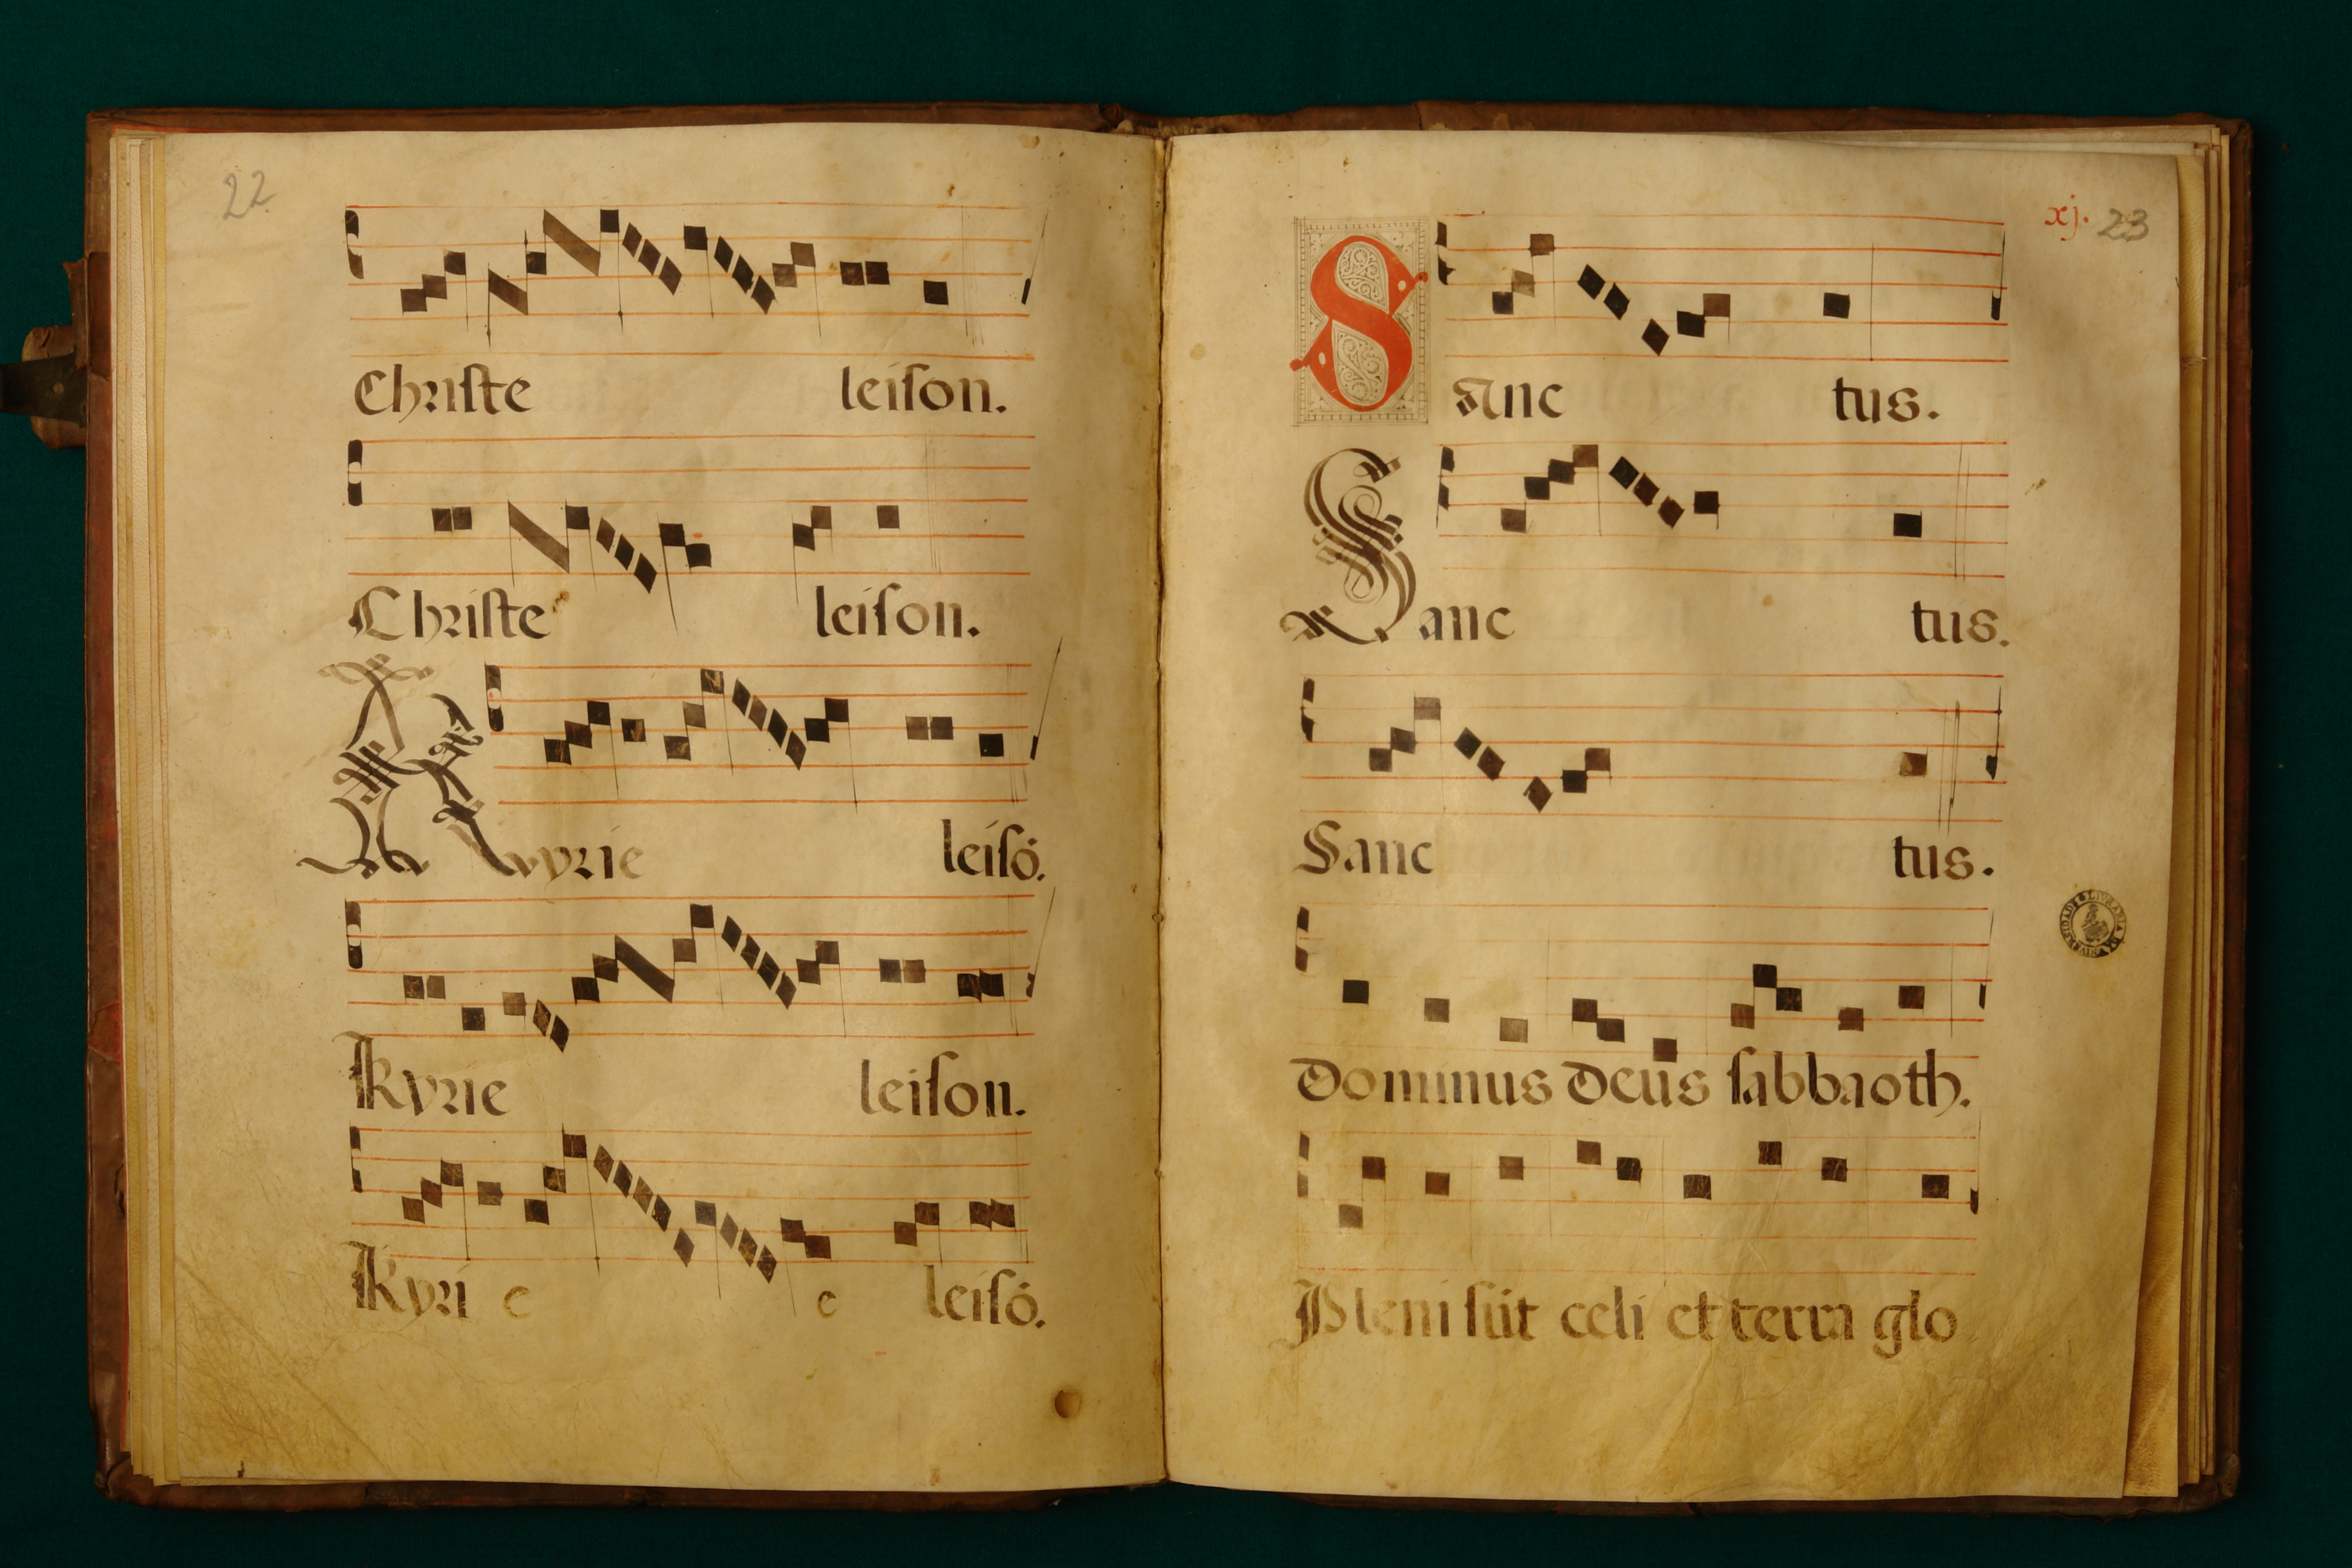 22
Chriſte leiſon.
Chriſte leiſon.
Kyrie leiſō.
Kyrie leiſon.
Kyri e e leiſō.
xj. 23
Sanc tus.
Sanc tus.
Sanc tus.
Dominus Deus ſabbaoth.
Pleni ſūt celi et terra glo